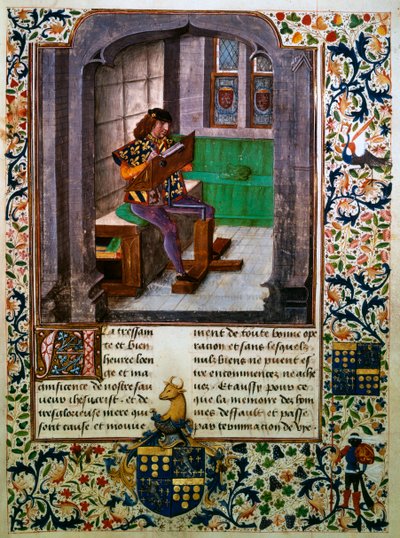 A la tressain
te et bien
heuree loen
ge et ma
gnificence de nostre sau
ueur ihesucrist . et de
sa glorieuse mere qui
sont cause et mouue
ment de toute bonne ope
racion et sans lesquelz
nulz biens ne puent es
tre encommencez ne ache
uez . Et aussy pour ce
que la memoire des hom
mes deffault et passe
par terminacion de vye .